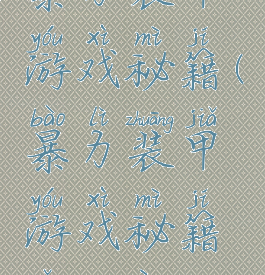 yóu xì mì jí
游戏秘籍(
bào lì zhuāng jiǎ
暴力装甲
yóu xì mì jí
游戏秘籍